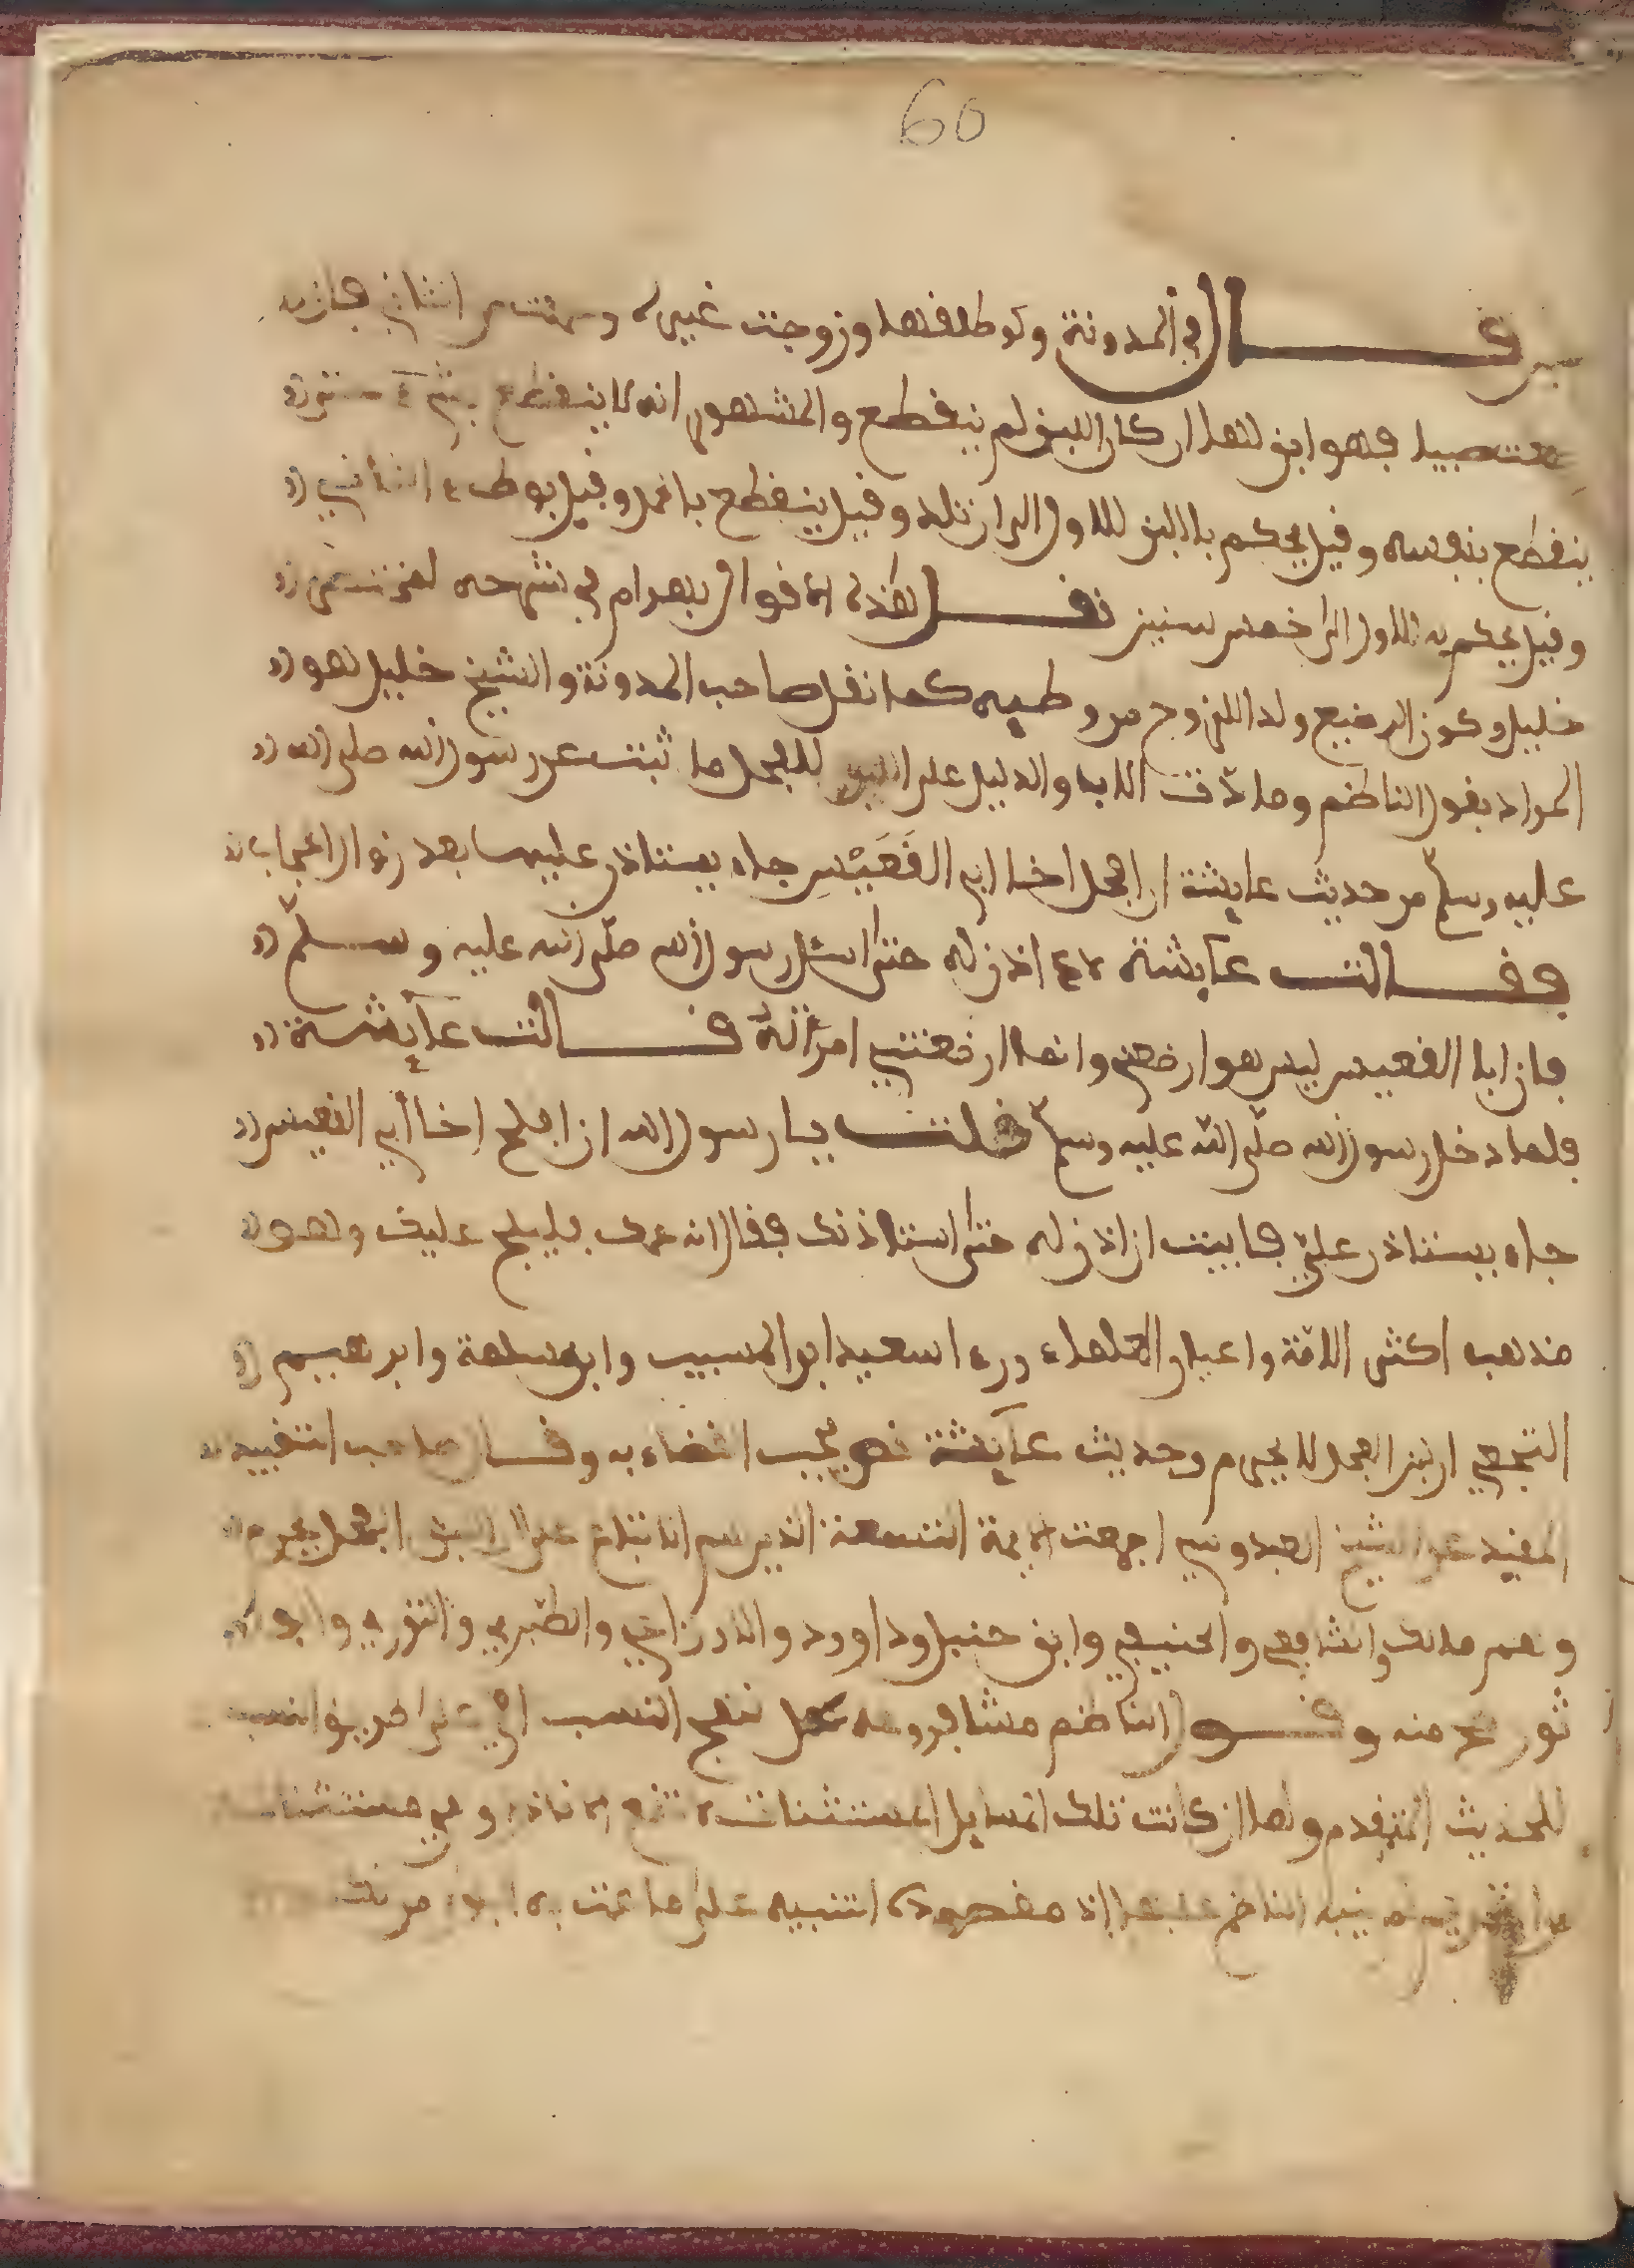 60
قال في المدونة ولو طلقها وزوجت غيره و من الثاني فان
صبيا فهو ابن لهما ان كان اللبن لم ينقطع والمشهور انه لا ينقطع
ينقطع بنفسه وقيل يحكم باللبن للاول الى ان تلد وقيل ينقطع بالحمل وقيل بوطء الثاني
وقيل يحكم به للاول الى خمس سنين نقل هذه الاقوال بهرام في شرحه
خليل وكون الرضيع ولدا للزوج من وطيه كما نقل صاحب المدونة والشيخ خليل هو
المراد بقول الناظم وما درت الاب والدليل على اللبن للفحل ما ثبت عن رسول الله صلى الله
عليه وسلم من حديث عايشة ان افلح اخا ابي القعيس جاء يستاذن عليها بعد نزول الحجاب
فقالت عايشة لا اذن له حتى اسئل رسول الله صلى الله عليه وسلم
فان ابا القعيس ليس هو ارضعني وانما ارضعتني امراته قالت عايشة
فلما دخل رسول الله صلى الله عليه وسلم قلت يا رسول الله ان افلح اخا ابي القعيس
جاء يستاذن علي فابيت ان اذن له حتى استاذنك فقال انه عمك فليلج عليك وهو
مذهب اكثر الامة واعيان العلماء ورءا سعيد ابن المسيب وابو سلمة وابرهيم
النخعي ان لبن الفحل لا يحرم وحديث عايشة نص يجب القضاء به وقال صاحب التقييد
المفيد عن الشيخ العبدوسي اجمعت الايمة التسعة الذين على ان لبن الفحل يحرم
وهم مالك والشافعي والحنفي وابن حنبل وداوود والاوزاعي والطبري والثوري وابو
ثور صح منه وقول الناظم مثل نفع النسب
للحديث المتقدم ولما ان كانت تلك المسايل المستثنات
ينبه الناظم عليها اذ مقصوده التنبيه على ما عمت به